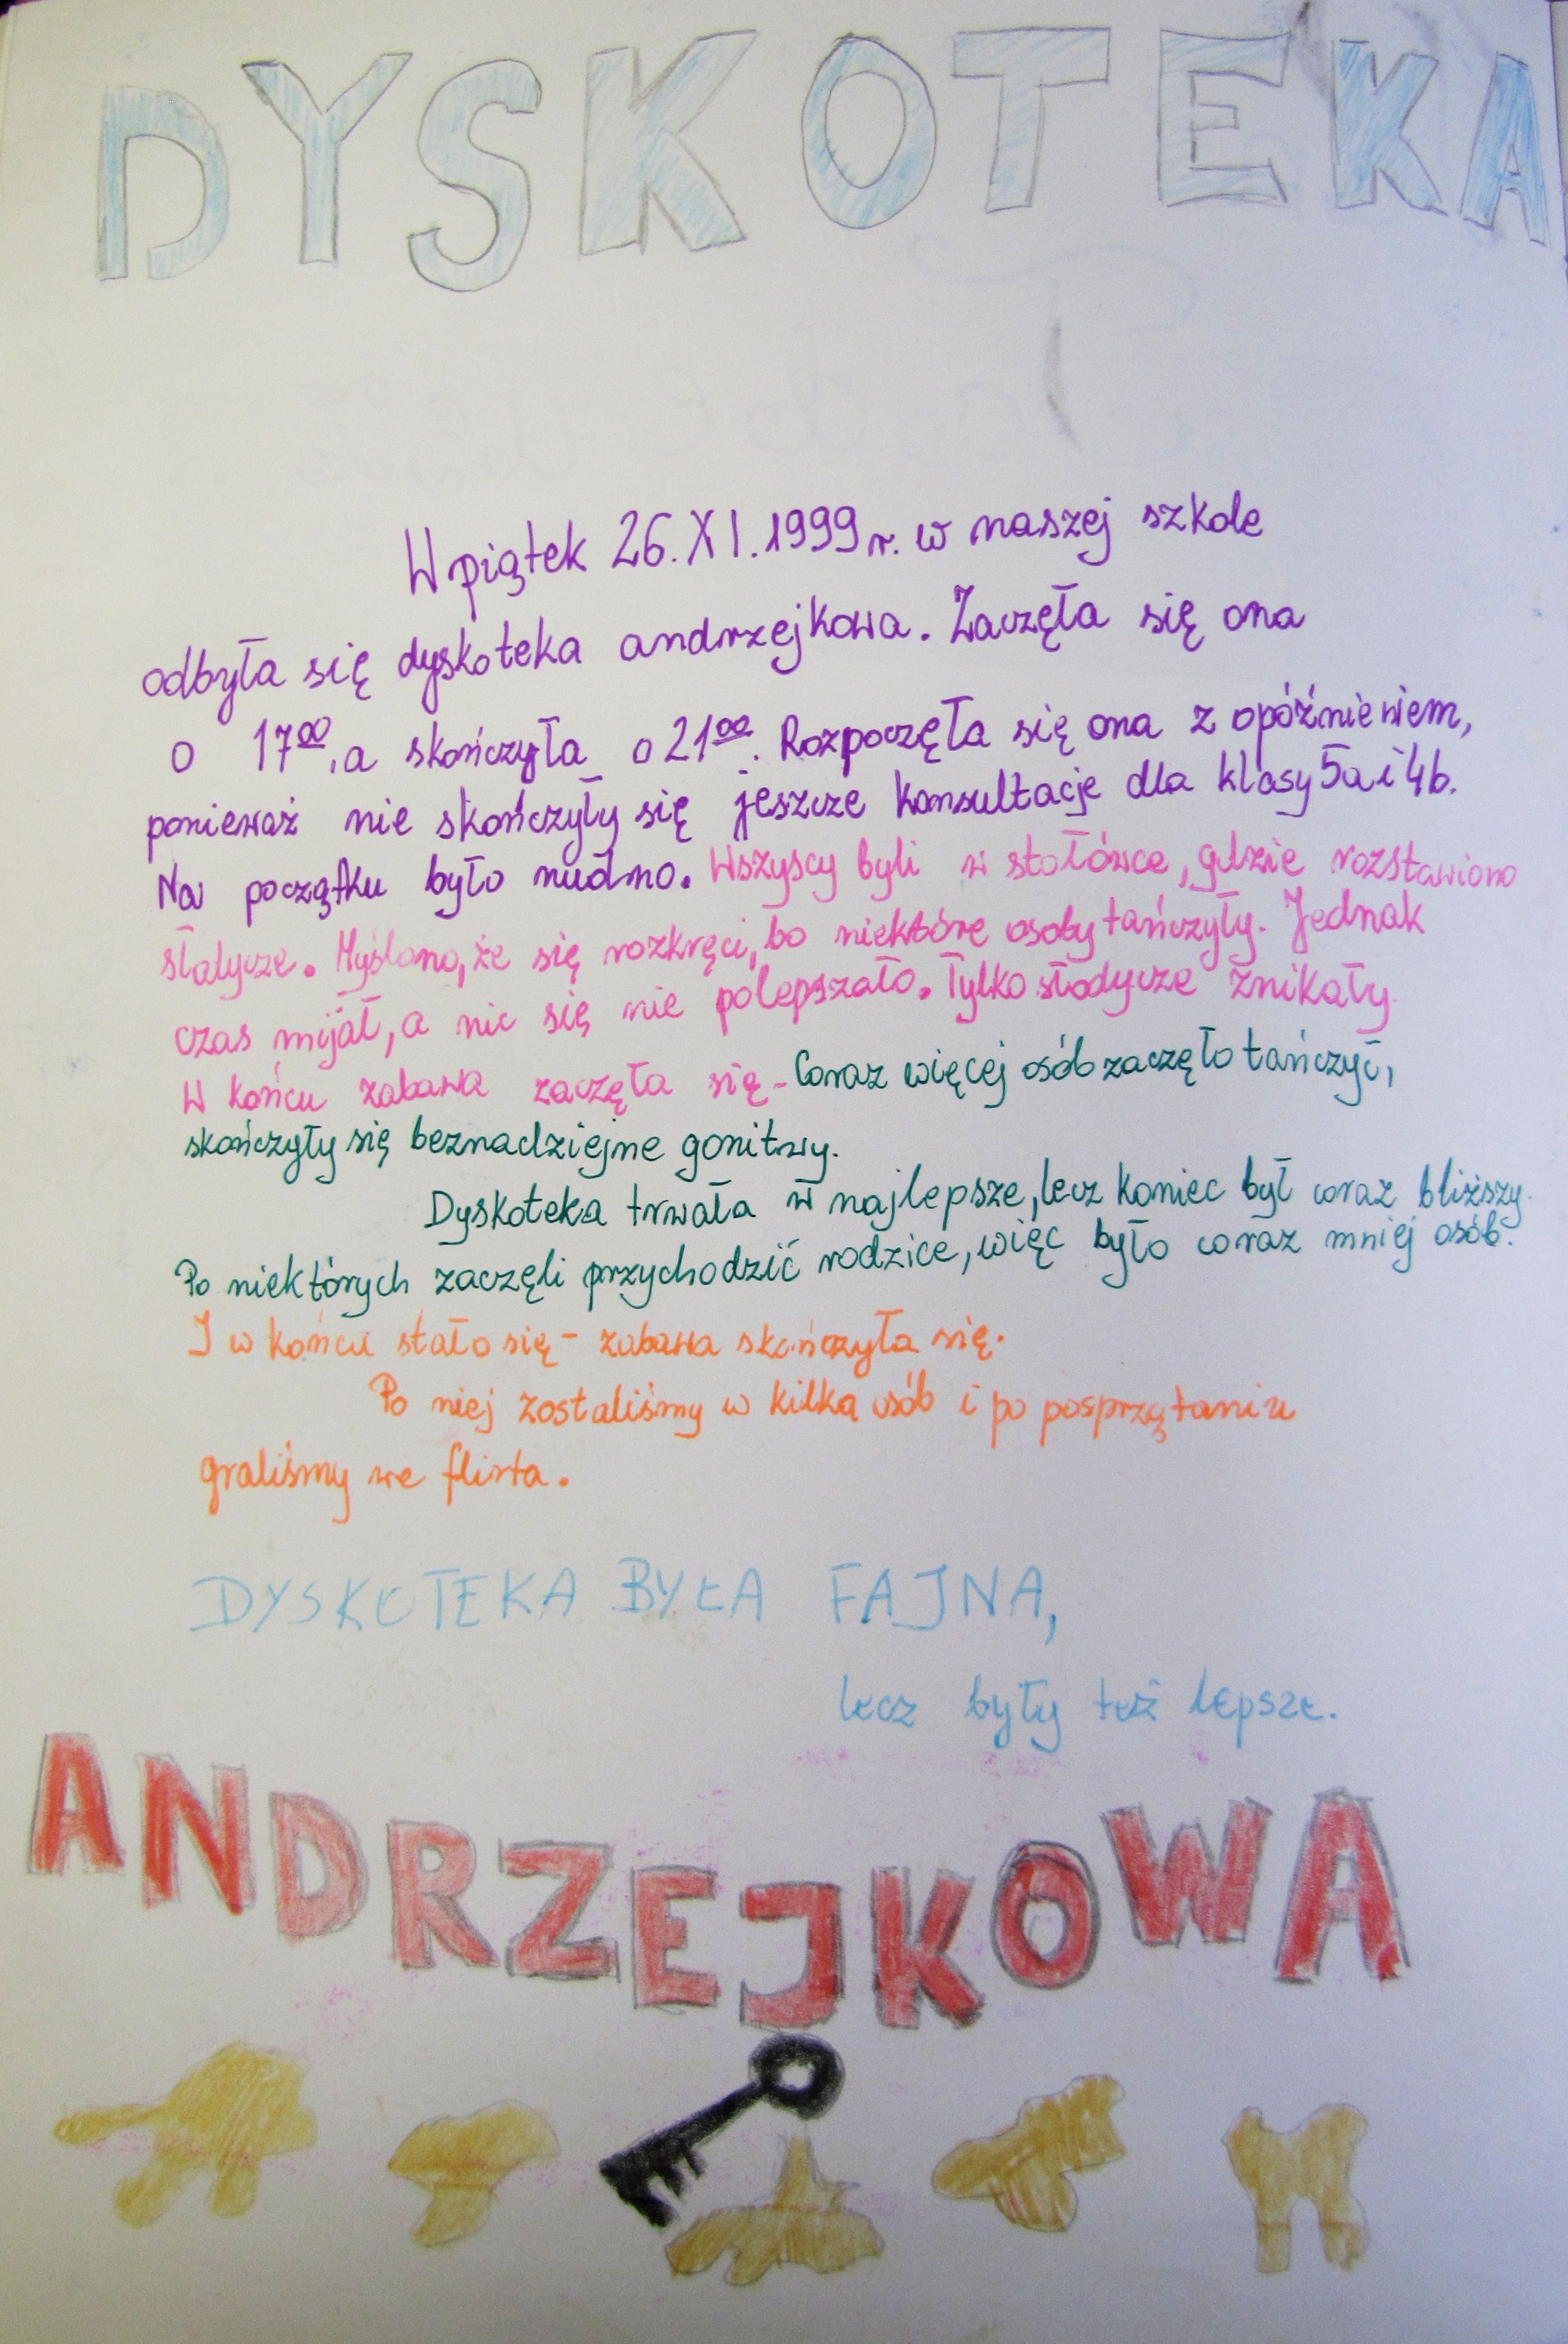 DYSKOTEKA
W piątek 26.XI.1999r. w naszej szkole
odbyła się dyskoteka andrzejkowa. Zaczęła się ona
o 17⁰⁰, a skończyła o 21⁰⁰. Rozpoczęła się ona z opóźnieniem,
ponieważ nie skończyły się jeszcze konsultacje dla klasy 5a i 4b.
Na początku było nudno. Wszyscy byli w stołówce, gdzie rozstawiono
słodycze. Myślano, że się rozkręci, bo niektóre osoby tańczyły. Jednak
czas mijał, a nic się nie polepszało. Tylko słodycze znikały.
W końcu zabawa zaczęła się - Coraz więcej osób zaczęło tańczyć,
skończyły się beznadziejne gonitwy.
Dyskoteka trwała w najlepsze, lecz koniec był coraz bliższy.
Po niektórych zaczęli przychodzić rodzice, więc było coraz mniej osób.
I w końcu stało się - zabawa skończyła się.
Po niej zostaliśmy w kilka osób i po posprzątaniu
graliśmy we flirta.
DYSKOTEKA BYŁA FAJNA,
lecz były też lepsze.
ANDRZEJKOWA